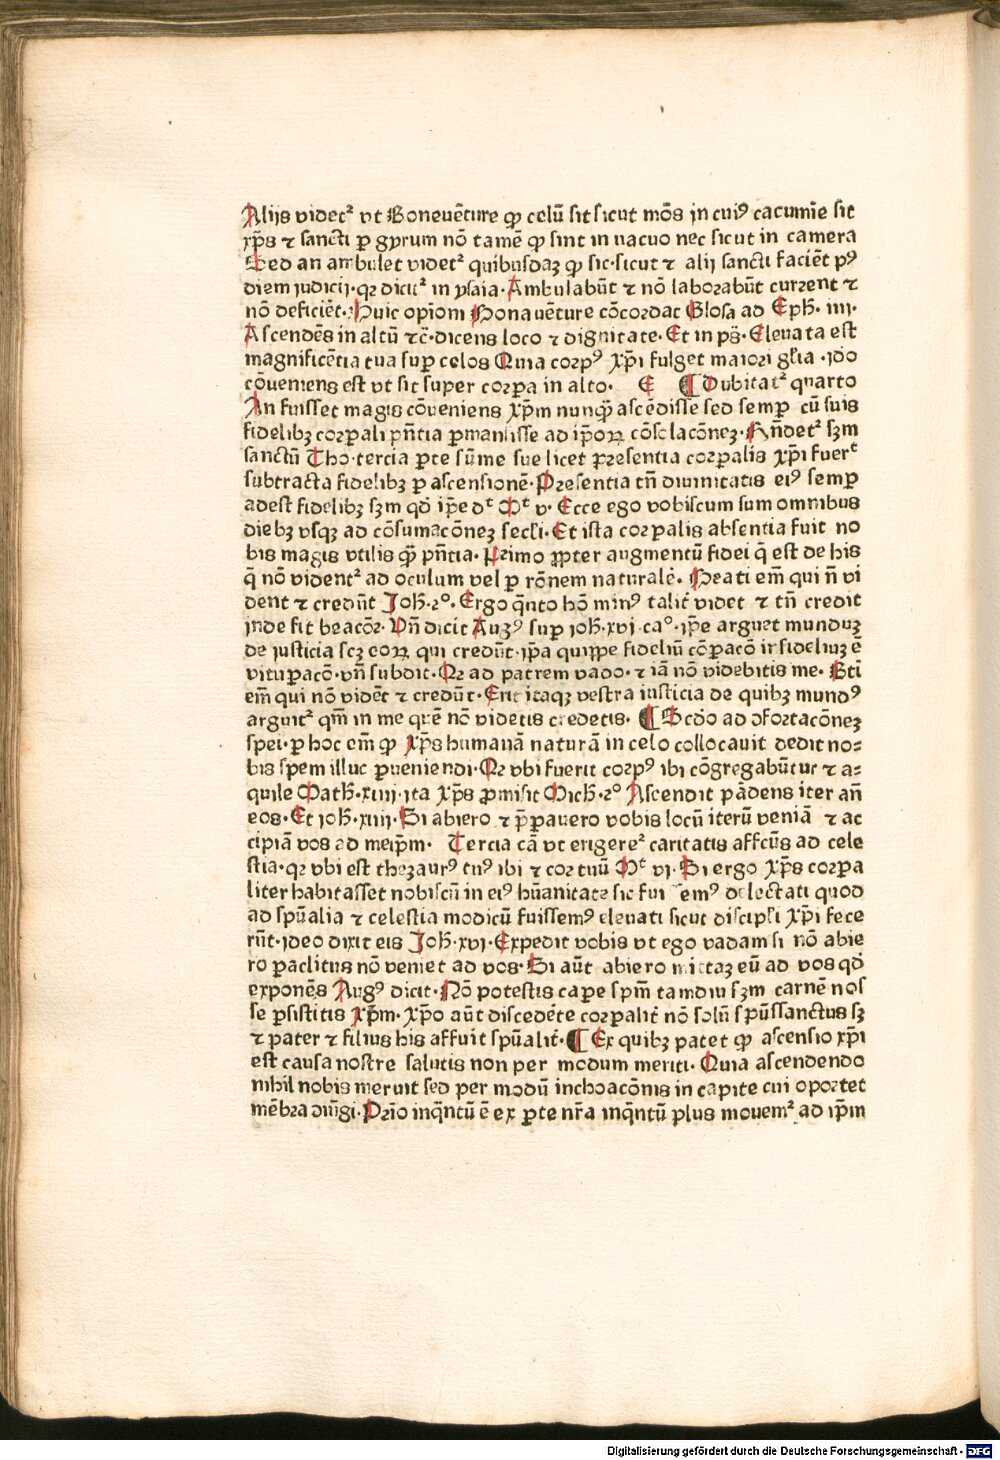 Alijs videt² vt Boneuẽture ꝙ celũ sit sicut mõs in cuiꝰ cacumĩe sit
xp̃s ⁊ sancti ꝑ gyrum nõ tamẽ ꝙ sint in uacuo nec sicut in camera
Sed an ambulet videt² quibusdaꝫ ꝙ sic·sicut ⁊ alij sancti faciẽt pꝰ
diem iudicij·qꝛ dicit² in ysaia·Ambulabũt ⁊ nõ laborabũt current ⁊
nõ deficiẽt·Huic opioni Bonauẽture cõcordac Glosa ad Eph̃·iiij·
Ascendẽs in altũ ⁊c̃·dicens loco ⁊ dignitate·Et in ps̃·Eleuata est
magnificẽtia tua suꝑ celos Quia corpꝰ Xp̃i fulget maiori gl̃ia·ido
cõueniens est vt sit super corpa in alto· E ¶ Dubitat² quarto
An fuisset magis cõueniens Xp̃m nunqꝫ̃ ascẽdisse sed semꝑ cũ suis
fidelibꝫ corꝑali pñtia ꝑmansisse ad ip̃oꝝ cõsolacõneꝫ·Rñdet² sꝫm
sanctũ Tho·tercia ꝑte sũme sue licet presentia corꝑalis Xp̃i fuerᵗ
subtracta fidelibꝫ ꝑ ascensionẽ·Presentia tñ diuinitatis eiꝰ semꝑ
adest fidelibꝫ sꝫm qđ ip̃e dᵗ Mᵗ v·Ecce ego vobiscum sum omnibus
diebꝫ vsqꝫ ad cõsumacõneꝫ secl̃i·Et ista corꝑalis absentia fuit no
bis magis vtilis ꝙ̃ pñtia·Primo ꝓpter augmentũ fidei q̃ est de his
q̃ nõ vident² ad oculum vel ꝑ rõnem naturalẽ·Beati em̃ qui ñ vi
dent ⁊ credũt Joh̃·2°·Ergo q̃nto hõ minꝰ talit̃ videt ⁊ tñ credit
inde fit beacõr·Vñ dicit Augꝰ suꝑ ioh̃·xvj ca°·ip̃e arguet munduꝫ
de iusticia scꝫ eoꝝ qui credũt·ip̃a quippe fideliũ cõꝑacõ infideliuꝫ ẽ
vituꝑacõ·vñ subdit·Qꝛ ad patrem vado·⁊ iã nõ videbitis me·Bti
em̃ qui nõ vidẽt ⁊ credũt·Erit itaqꝫ vestra iusticia de quibꝫ mundꝰ
arguit² qm̃ in me quẽ nõ videtis credetis· ¶ Scđo ad ↄfortacõneꝫ
spei·ꝑ hoc em̃ ꝙ Xp̃s humanã naturã in celo collocauit dedit no⸗
bis spem illuc ꝑueniendi·Qꝛ vbi fuerit corpꝰ ibi cõgregabũtur ⁊ a⸗
quile Math̃·xiiij·ita Xp̃s ꝓmisit Mich̃·2° Ascendit pãdens iter añ
eos·Et ioh̃·xiiij·Si abiero ⁊ p̃ꝑauero vobis locũ iterũ veniã ⁊ ac
cipiã vos ad meip̃m· Tercia cã vt erigere² caritatis affcũs ad cele
stia·qꝛ vbi est thezaurꝰ tuꝰ ibi ⁊ cor tuũ Mᵗ vj·Si ergo Xp̃s corpa
liter habitasset nobiscũ in eiꝰ hũanitate sic fuissemꝰ delectati quod
ad spũalia ⁊ celestia modicũ fuissemꝰ eleuati sicut discipl̃i Xp̃i fece
rũt·ideo dixit eis Joh̃·xvj·Expedit vobis vt ego vadam si nõ abie
ro paclitus nõ veniet ad vos·Si aũt abiero mittaꝫ eũ ad vos qđ
exponẽs Augꝰ dicit·Nõ potestis capere spm̃ tamdiu sꝫm carnẽ nos
se ꝑsistitis Xp̃m·Xp̃o aũt discedẽte corꝑalit̃ nõ solũ spũssanctus sꝫ
⁊ pater ⁊ filius his affuit spũalit̃· ¶ Ex quibꝫ patet ꝙ ascensio xp̃i
est causa nostre salutis non per modum meriti·Quia ascendendo
nihil nobis meruit sed per modũ inchoacõnis in capite cui oportet
mẽbra ↄiũgi·Prĩo inq̃ntũ ẽ ex ꝑte nr̃a inq̃ntũ plus mouem² ad ip̃m
Digitalisierung gefördert durch die Deutsche Forschungsgemeinschaft - DFG